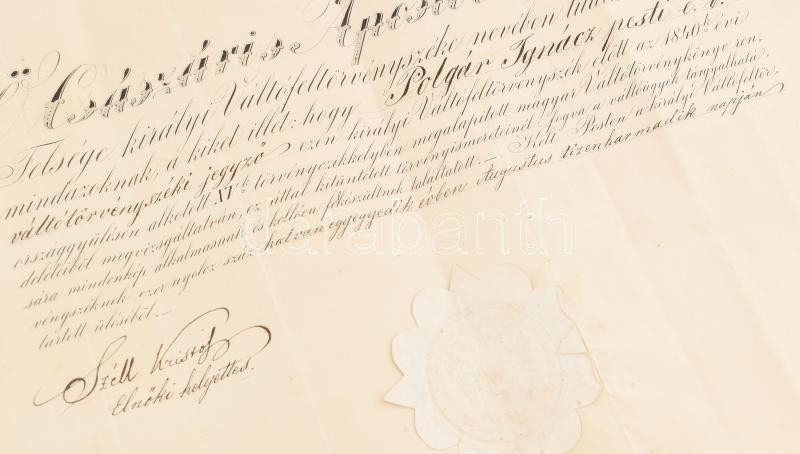 Ő Császáris. Aposto
Felsége királyi Váltófeltörvényszéke nevében
mindazoknak, a kiket illet: hogy Polgár Ignácz pesti
váltótörvényszéki jegyző ezen királyi Váltófeltörvényszék előtt az 1840k évi
országgyülésén alkotott XVk törvényczikkelyben megalapitott magyar Váltótörvénykönyv ren-
deleteiből megvizsgáltatván, ez által kitüntetett törvényismereteinél fogva a váltóügyek tárgyalhatá-
sára mindenkép alkalmasnak és kellően felkészültnek találtatott. – Kelt Pesten a királyi Váltófeltör-
vényszéknek ezer nyolcz száz hatvanegyegyedik évben Augustus tizenharmadik napján
tartott üléséből. –
Széll Kristóf
Elnöki helyettes.
darabanth